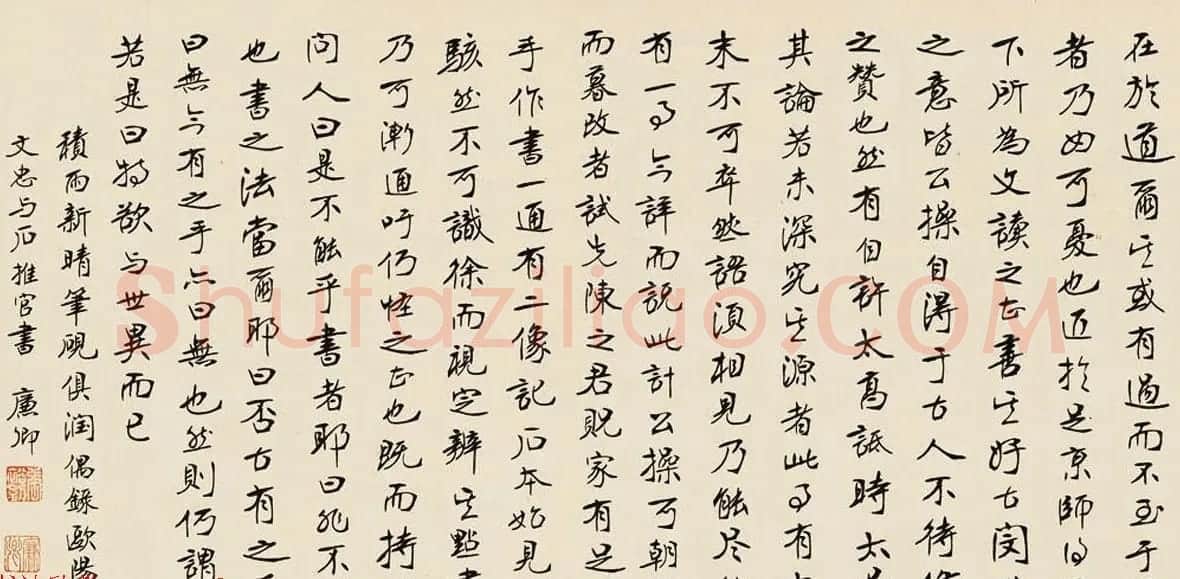 在於道爾其或有過而不至于
者乃可憂也近於足京師
下所為文讀之甚善其好古閔
之意皆公操自得于古人不待
之贊也然有自許太高詆時太
其論若未深究其源者此事有
末不可卒然語須相見乃能尽
有一事今詳而說此計公操可朝
而暮改者試先陳之君貺家有足
手作書一通有二像記石本始見
駭然不可識徐而視定辨其點
乃可漸通吁何怪之甚也既而持
問人曰是不能乎書者耶曰非不
也書之法當爾耶曰否古有之
曰無今有之乎亦曰無也然則何謂
若是曰特欲与世異而已
積雨新晴筆硯俱潤偶錄歐陽
文忠与石推官書 廉卿
shufaziliao.com